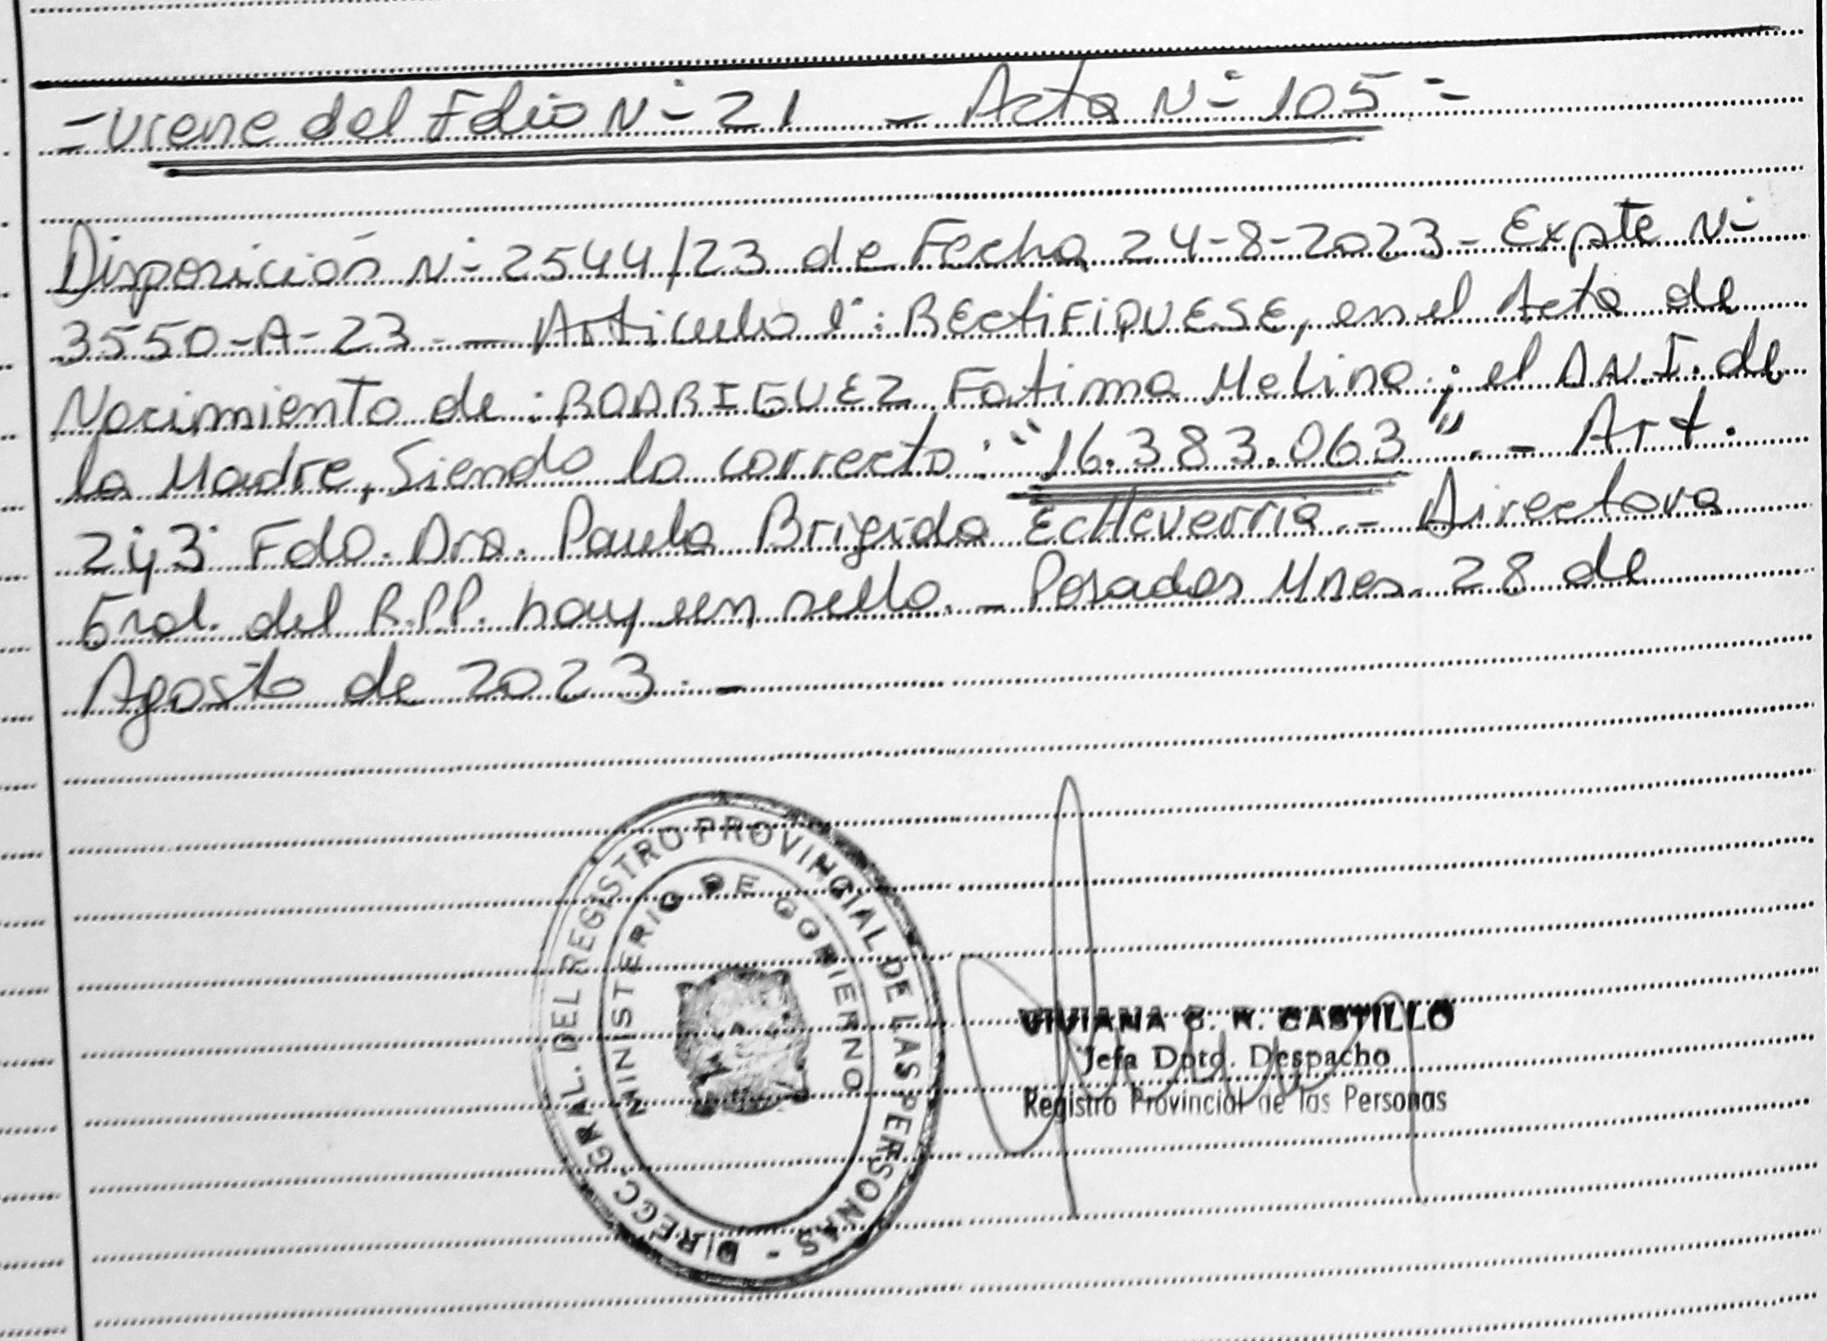 = Viene del Folio Nº 21 - Acta Nº 105 =
Disposición Nº 2544/23 de Fecha 24-8-2023 - Expte Nº
3550-A-23 - Articulo 1º: RECTIFIQUESE, en el Acta de
Nacimiento de: RODRIGUEZ Fatima Melina; el D.N.I. de
la Madre, Siendo lo correcto: "16.383.063". - Art.
2 y 3 Fdo. Dra. Paula Brigida Echeverria - Directora
Gral. del R.P.P. hay un sello. - Posadas Mnes. 28 de
Agosto de 2023. -
DIRECC. GRAL. DEL REGISTRO PROVINCIAL DE LAS PERSONAS -
MINISTERIO DE GOBIERNO
VIVIANA CASTILLO
Jefa Dpto. Despacho
Registro Provincial de las Personas